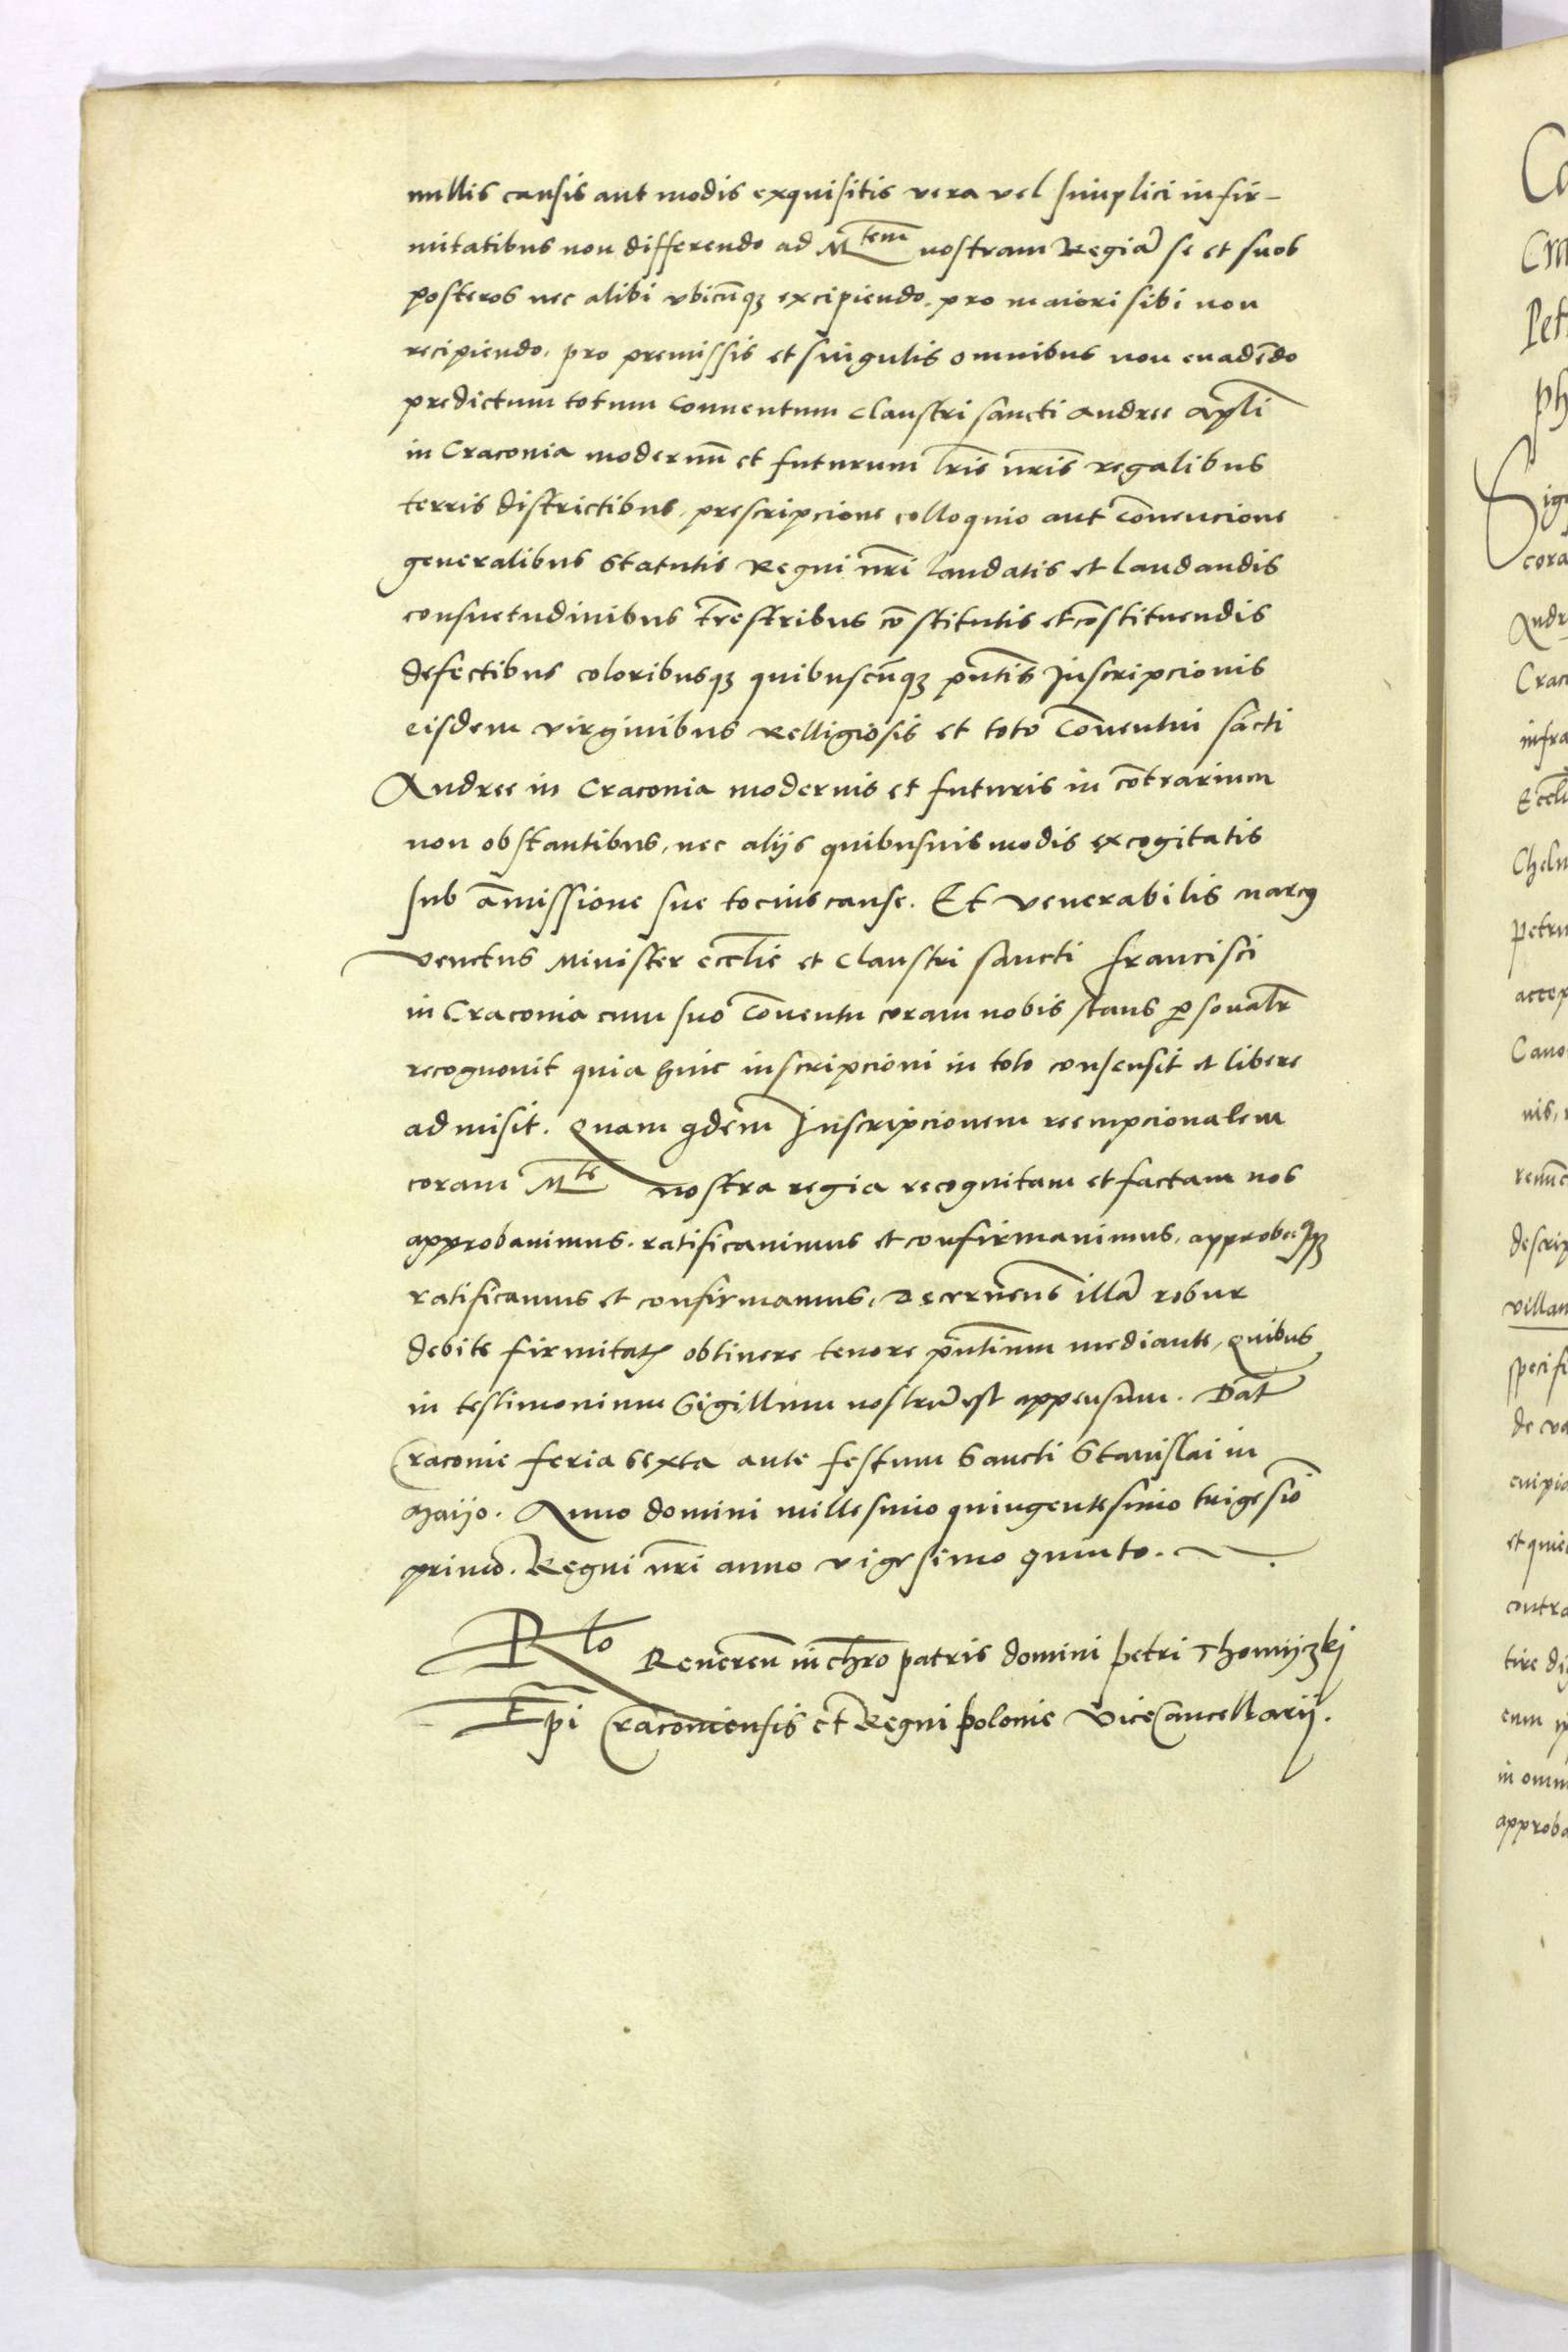 nullis causis aut modis exquisitis vera vel simplici infir-
mitatibus non differendo ad Mtem nostram Regiā se et suos
posteros nec alibi vbicūqꝫ excipiendo. pro maiori sibi non
recipiendo. pro premissis et singulis omnibus non euadēdo
predictum totum Conuentum Claustri sancti Andree Apl̄i
in Cracouia modernū et futurum l̄ris n̄ris regalibus
terris districtibus, prescripcione colloquio aut Cōuencione
generalibus Statutis Regni n̄ri laudatis et laudandis
consuetudinibus t̄restribus cōstitutis et cōstituendis
defectibus coloribusqꝫ quibuscūqꝫ p̄ntis Inscripcionis
eisdem virginibus Relligiosis et toto Cōuentui sācti
Andree in Cracouia modernis et futuris in cōtrarium
non obstantibus, nec alijs quibusuis modis excogitatis
sub āmissione sue tocius cause. Et venerabilis marcꝰ
venetus Minister eccl̄ie et Claustri sancti francisci
in Cracouia cum suo Cōuentu coram nobis stans ꝑsonalr̄
recognouit quia huic inscripcioni in toto consensit et libere
admisit. Quam q̄dem Inscripcionem reempcionalem
coram Mte nostra regia recognitam et factam nos
approbauimus. ratificauimus et confirmauimus, approbamꝰqꝫ
ratificamus et confirmamus, Decernens illā robur
debite firmitatꝭ obtinere tenore p̄ntium mediante, Quibus
in testimonium Sigillum nostrū est appensum. Dat̄
Cracouie feria sexta ante festum Sancti Stanislai in
Maijo. Anno domini millesimo quingentesimo trigesiō
primo. Regni n̄ri anno vigesimo quinto.
Rlo Reuereñ in chr̄o patris domini petri Thomyzkj
Ep̄i Cracouiensis et Regni polonie ViceCancellarij.
Ca
Cra
Pet
ph
Sig
cora
Andr
Crac
infra
Eccl
Cheln
petru
accep
Cano
nis,
renūc
descrip
villan
specifi
de va
et quie
contra
tire di
in omn
approba